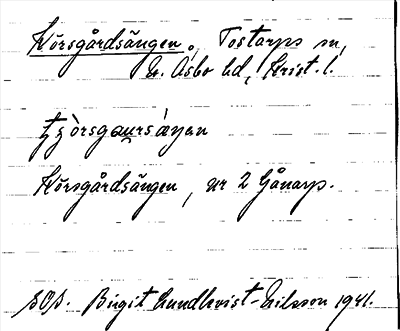 Körsgårdsängen, Tostarps sn,
N. Åsbo hd, Krist. l.
Körsgårdsängen, nr 2 Gånarp.
SOS. Birgit Lundkvist-Nilsson 1941.